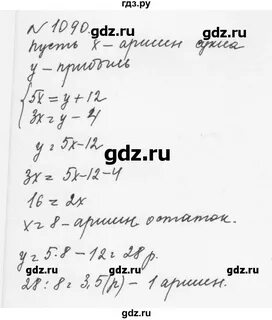 гдз.ру
№ 1090.
Пусть x - аршин сукна
y - прибыль
{5x = y + 12
3x = y - 4
y = 5x - 12
3x = 5x - 12 - 4
16 = 2x
x = 8 - аршин остаток.
y = 5·8 - 12 = 28 р.
28 : 8 = 3,5 (р) - 1 аршин.
gdz.ru
gdz.ru
gdz.ru
gdz.ru
gdz.ru
gdz.ru
gdz.ru